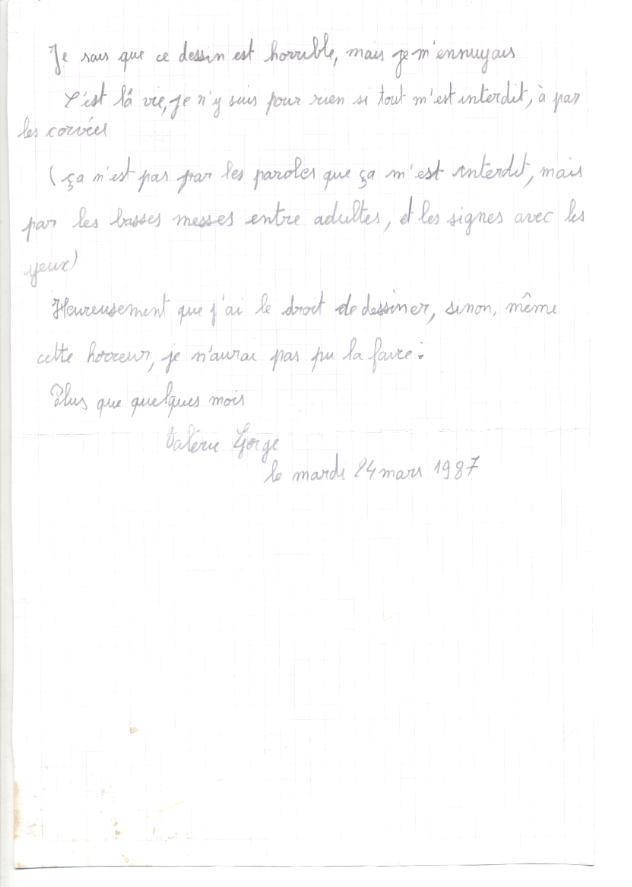 Je sais que ce dessin est horrible, mais je m'ennuyais
C'est là vie, je n'y suis pour rien si tout m'est interdit, à par
les corvées
(ça n'est pas par les paroles que ça m'est interdit, mais
par les basses messes entre adultes, et les signes avec les
yeux)
Heureusement que j'ai le droit de dessiner, sinon, même
cette horreur, je n'aurai pas pu la faire.
Plus que quelques mois
Valérie Gorge
le mardi 24 mars 1987